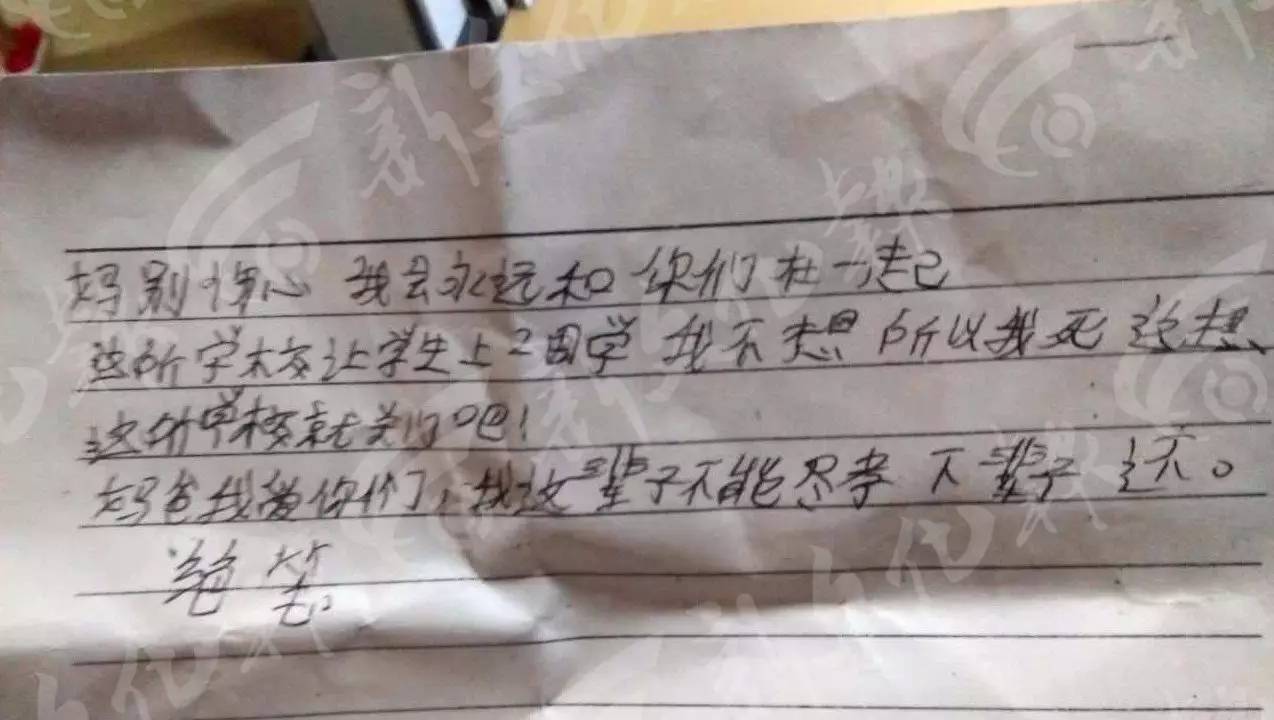 妈别惮心 我会永远和你们在一起
这所学校让学生上2周学 我不想 所以我死 这想
这所学校就关门吧!
妈爸我爱你们,我这辈子不能尽孝 下辈子还。
绝笔